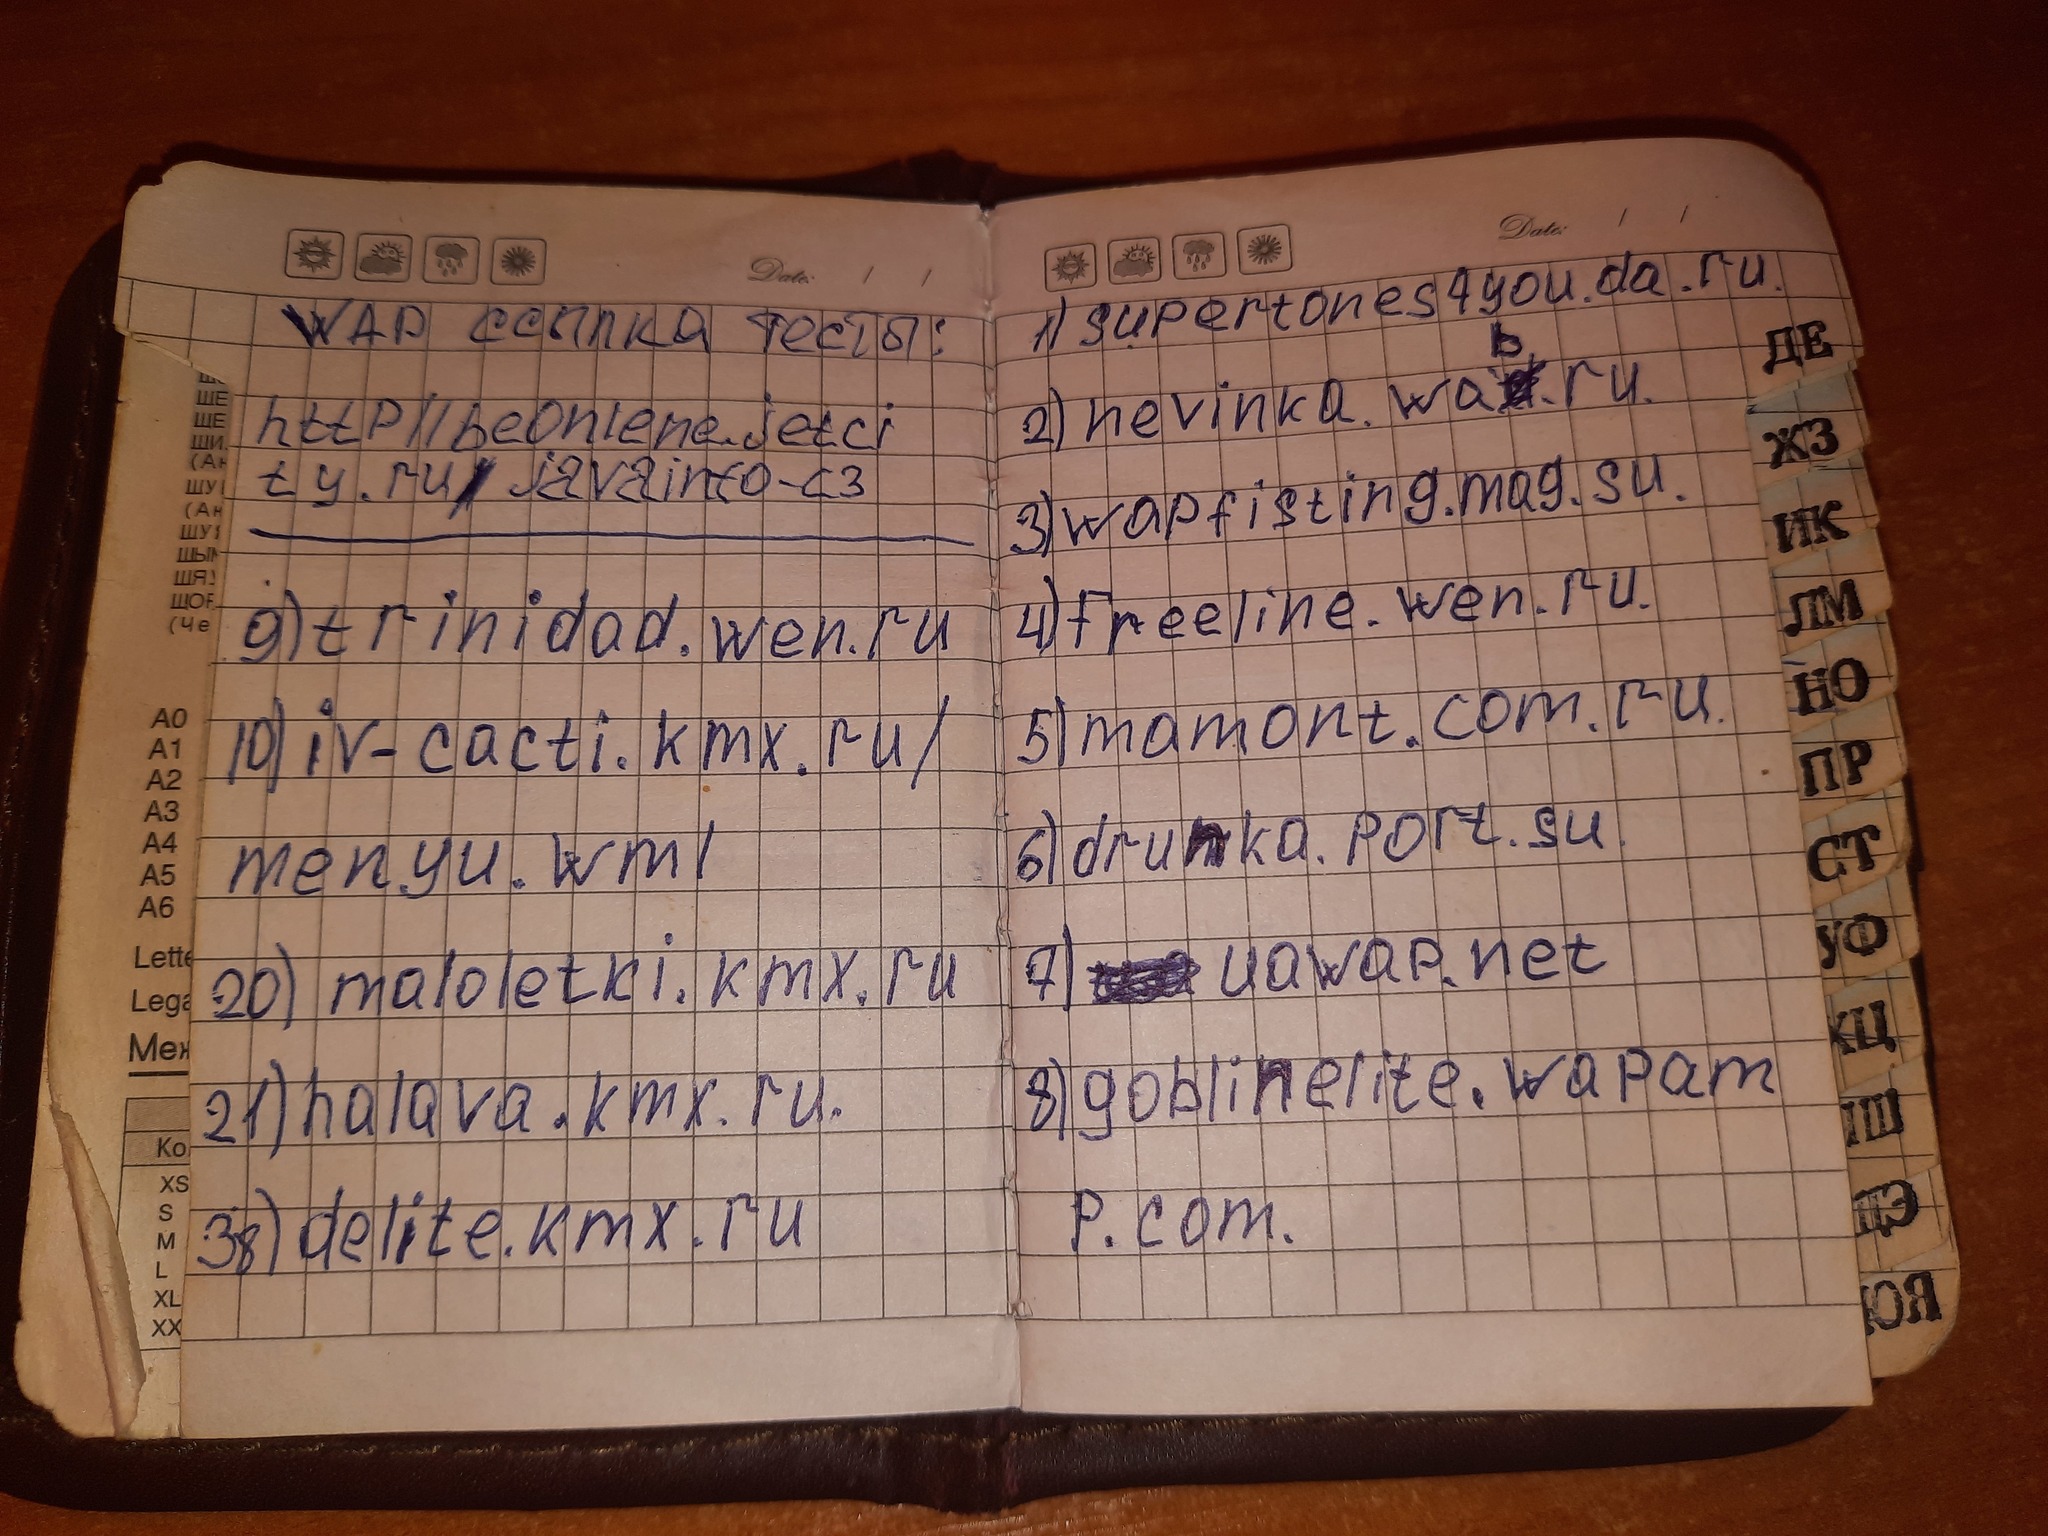 WAP ссылка тесты:
http//beonlene.jetci
ty.ru/ javainfo-c3
9) trinidad.wen.ru
10) iv-cacti.kmx.ru/
menyu.wml
20) maloletki.kmx.ru
21) halava.kmx.ru.
38) delite.kmx.ru
Date: / /
1) supertones4you.da.ru.
2) nevinka.wab.ru.
3) wapfisting.mag.su.
4) freeline.wen.ru.
5) mamont.com.ru.
6) drunka.port.su.
7) uawap.net
8) goblinelite.wapam
p.com.
Date: / /
ДЕ
ЖЗ
ИК
ЛМ
НО
ПР
СТ
УФ
ХЦ
ЩЭ
ЮЯ
A0
A1
A2
A3
A4
A5
A6
XS
S
M
L
XL